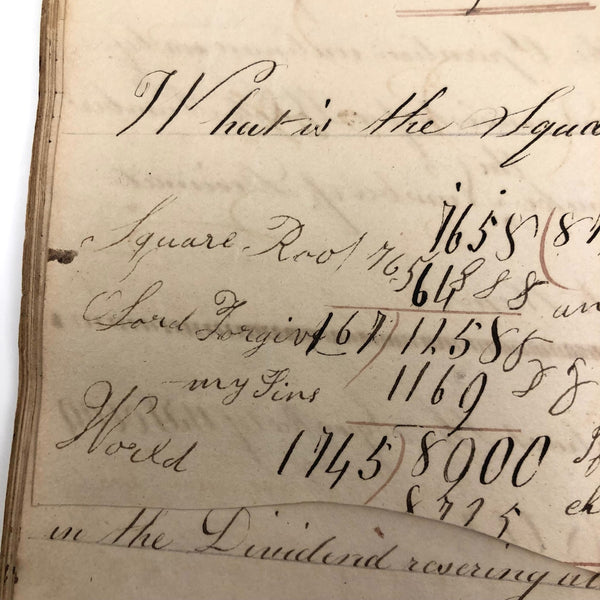 What is the Squa
7658(8
Square Root 765
64 8 8 8 an
Lord Forgive 167)1258 8
my Sins 1169 8 8
World 1745)8900
8725 ch
in the Dividend resering at